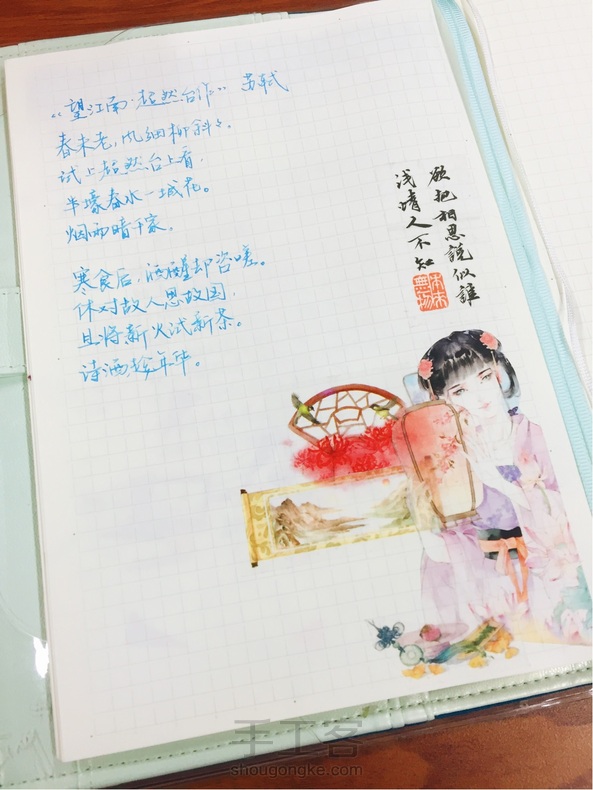 《望江南·超然台作》 苏轼
春未老，风细柳斜々。
试上超然台上看，
半壕春水一城花。
烟雨暗千家。
寒食后，酒醒却咨嗟。
休对故人思故国，
且将新火试新茶。
诗酒趁年华。
欲把相思說似誰
浅情人不知
手工客
shougongke.com